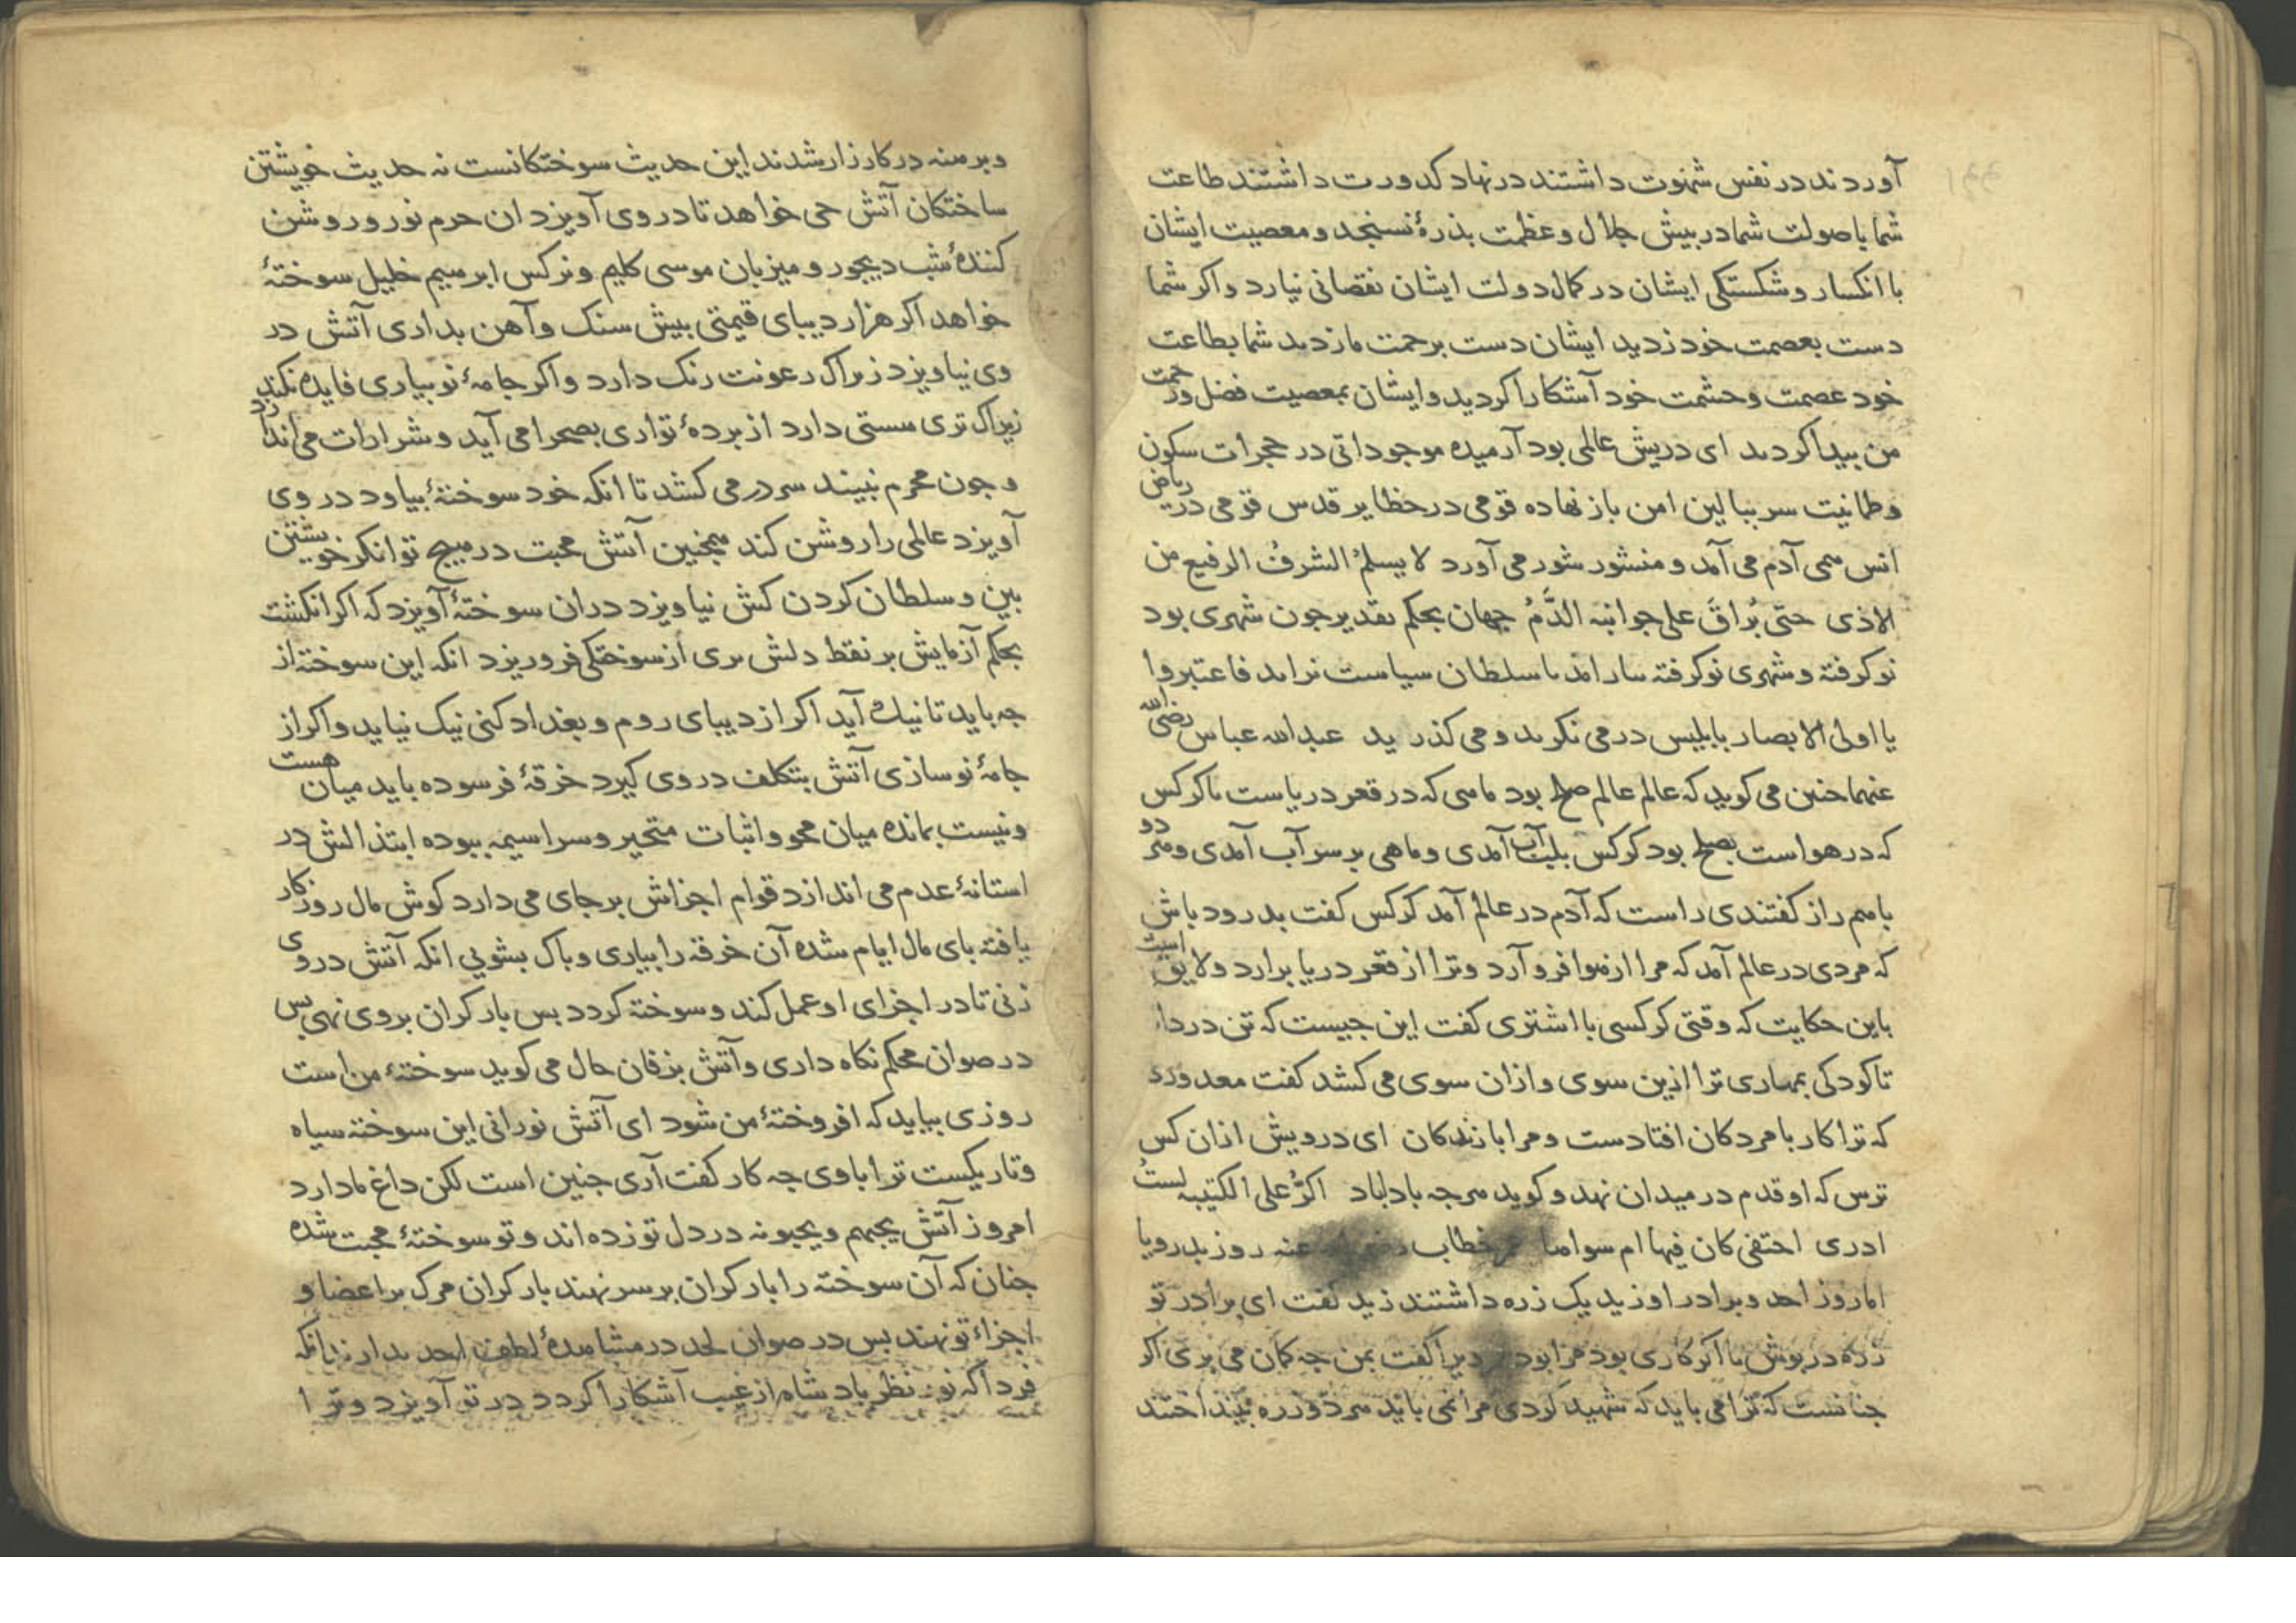 آوردند در نفس شهوت داشتند در نهاد کدورت داشتند طاعت
شما باصولت شما در بیش جلال و عظمت بذرهٔ نسنجد و معصیت ایشان
با انکسار و شکستکی ایشان در کمال دولت ایشان نقصانی نیارد و اکر شما
دست بعصمت خود زدید ایشان دست برحمت ما زدند شما بطاعت
خود عصمت و حشمت خود آشکارا کردید و ایشان بمعصیت فضل و رحمت
من بیدا کردند ای دریش عالمی بود آرمیده موجوداتی در حجرات سکون
و طمانیت سر ببالین امن باز نهاده قومی در حظایر قدس قومی در ریاض
انس همی آدم می آمد و منشور شور می آورد لا یسلمُ الشرفُ الرفیع من
الاذی حتی یُراقَ علی جوانبه الدَّمُ جهان بحکم تقدیر جون شهری بود
نو کرفته و شهری نو کرفته سلطان سیاست فاعتبروا
یا اولی الابصار بابلیس در می نکرید و می کذرید عبدالله عباس رضی الله
عنهما جنین می کوید که عالم عالم صلح بود ماهی که در قعر دریاست با کرکس
که در هواست بصلح بود کرکس بلب آب آمدی و ماهی بر سر آب آمدی و هر دو
باهم راز کفتندی راست که آدم در عالم آمد کرکس کفت بدرود باش
که مردی در عالم آمد که مرا از هوا فرو آرد و ترا از قعر دریا برارد و لایق است
باین حکایت که وقتی کرکسی با اشتری کفت این جیست که تن در داده
تا کودکی بمهاری ترا ازین سوی و ازان سوی می کشد کفت
که ترا کار با مردکان افتادست و مرا با زندکان ای درویش ازان کس
ترس که او قدم در میدان نهد و کوید هرجه باداباد اکرُّ علی الکتیبه لستُ
ادری احتفی کان فیها ام سواها عمر خطاب رضی الله عنه روز بدر و یا
اما روز احد و برادر او زید یک زره داشتند زید کفت ای برادر تو
زره در بوش تا اکر کاری بود مرا بود کفت بمن جه کمان می بری اکر
جنانست که ترا می باید که شهید کردی مرا نمی باید هر دو زره بینداختند
و برهنه در کارزار شدند این حدیث سوختکانست نه حدیث خویشتن
ساختکان آتش می خواهد تا در وی آویزد ان حرم نور و روشن
کنندهٔ شب دیجور و میزبان موسی کلیم و نرکس ابرهیم خلیل سوختهٔ
خواهد اکر هزار دیبای قیمتی بیش سنک و آهن بداری آتش در
وی نیاویزد زیراک رعونت رنک دارد و اکر جامهٔ نو بیاری فایده نکند
زیراک تری هستی دارد از بردهٔ تواری بصحرا می آید و شرارات می اندازد
و جون محرم نبیند سر در می کشد تا انکه خود سوختهٔ بیاود در وی
آویزد عالمی را روشن کند همجنین آتش محبت در هیج توانکر خویشتن
بین و سلطان کردن کش نیاویزد دران سوختهٔ آویزد که اکر انکشت
بحکم آزمایش بر نقط دلش بری از سوختکی فرو ریزد انکه این سوخته از
جه باید تا نیک آید اکر از دیبای روم و بغداد کنی نیک نیاید و اکر از
جامهٔ نو سازی آتش بتکلف در وی کیرد خرقهٔ فرسوده باید میان هست
و نیست بمانده میان محو و اثبات متحیر و سراسیمه ببوده ابتذالش در
استانهٔ عدم می اندازد قوام اجزاش بر جای می دارد کوش مال روزکار
یافته بای مال ایام شده آن خرقه را بیاری و باک بشویی انکه آتش در وی
زنی تا در اجزای او عمل کند و سوخته کردد بس بار کران بر وی نهی بس
در صوان محکم نکاه داری و آتش بزفان حال می کوید سوختهٔ من است
روزی بباید که افروختهٔ من شود ای آتش نورانی این سوختهٔ سیاه
و تاریکست ترا با وی جه کار کفت آری جنین است لکن داغ ما دارد
امروز آتش یحبهم و یحبونه در دل تو زده اند و تو سوختهٔ محبت شده
جنان که آن سوخته را بار کران بر سر نهند بار کران مرک بر اعضا و
اجزاء تو نهند بس در صوان لحد در مشاهدهٔ لطف احد بدارند انکه
فردا که نور نظر بادشاه از غیب آشکارا کردد در تو آویزد و ترا